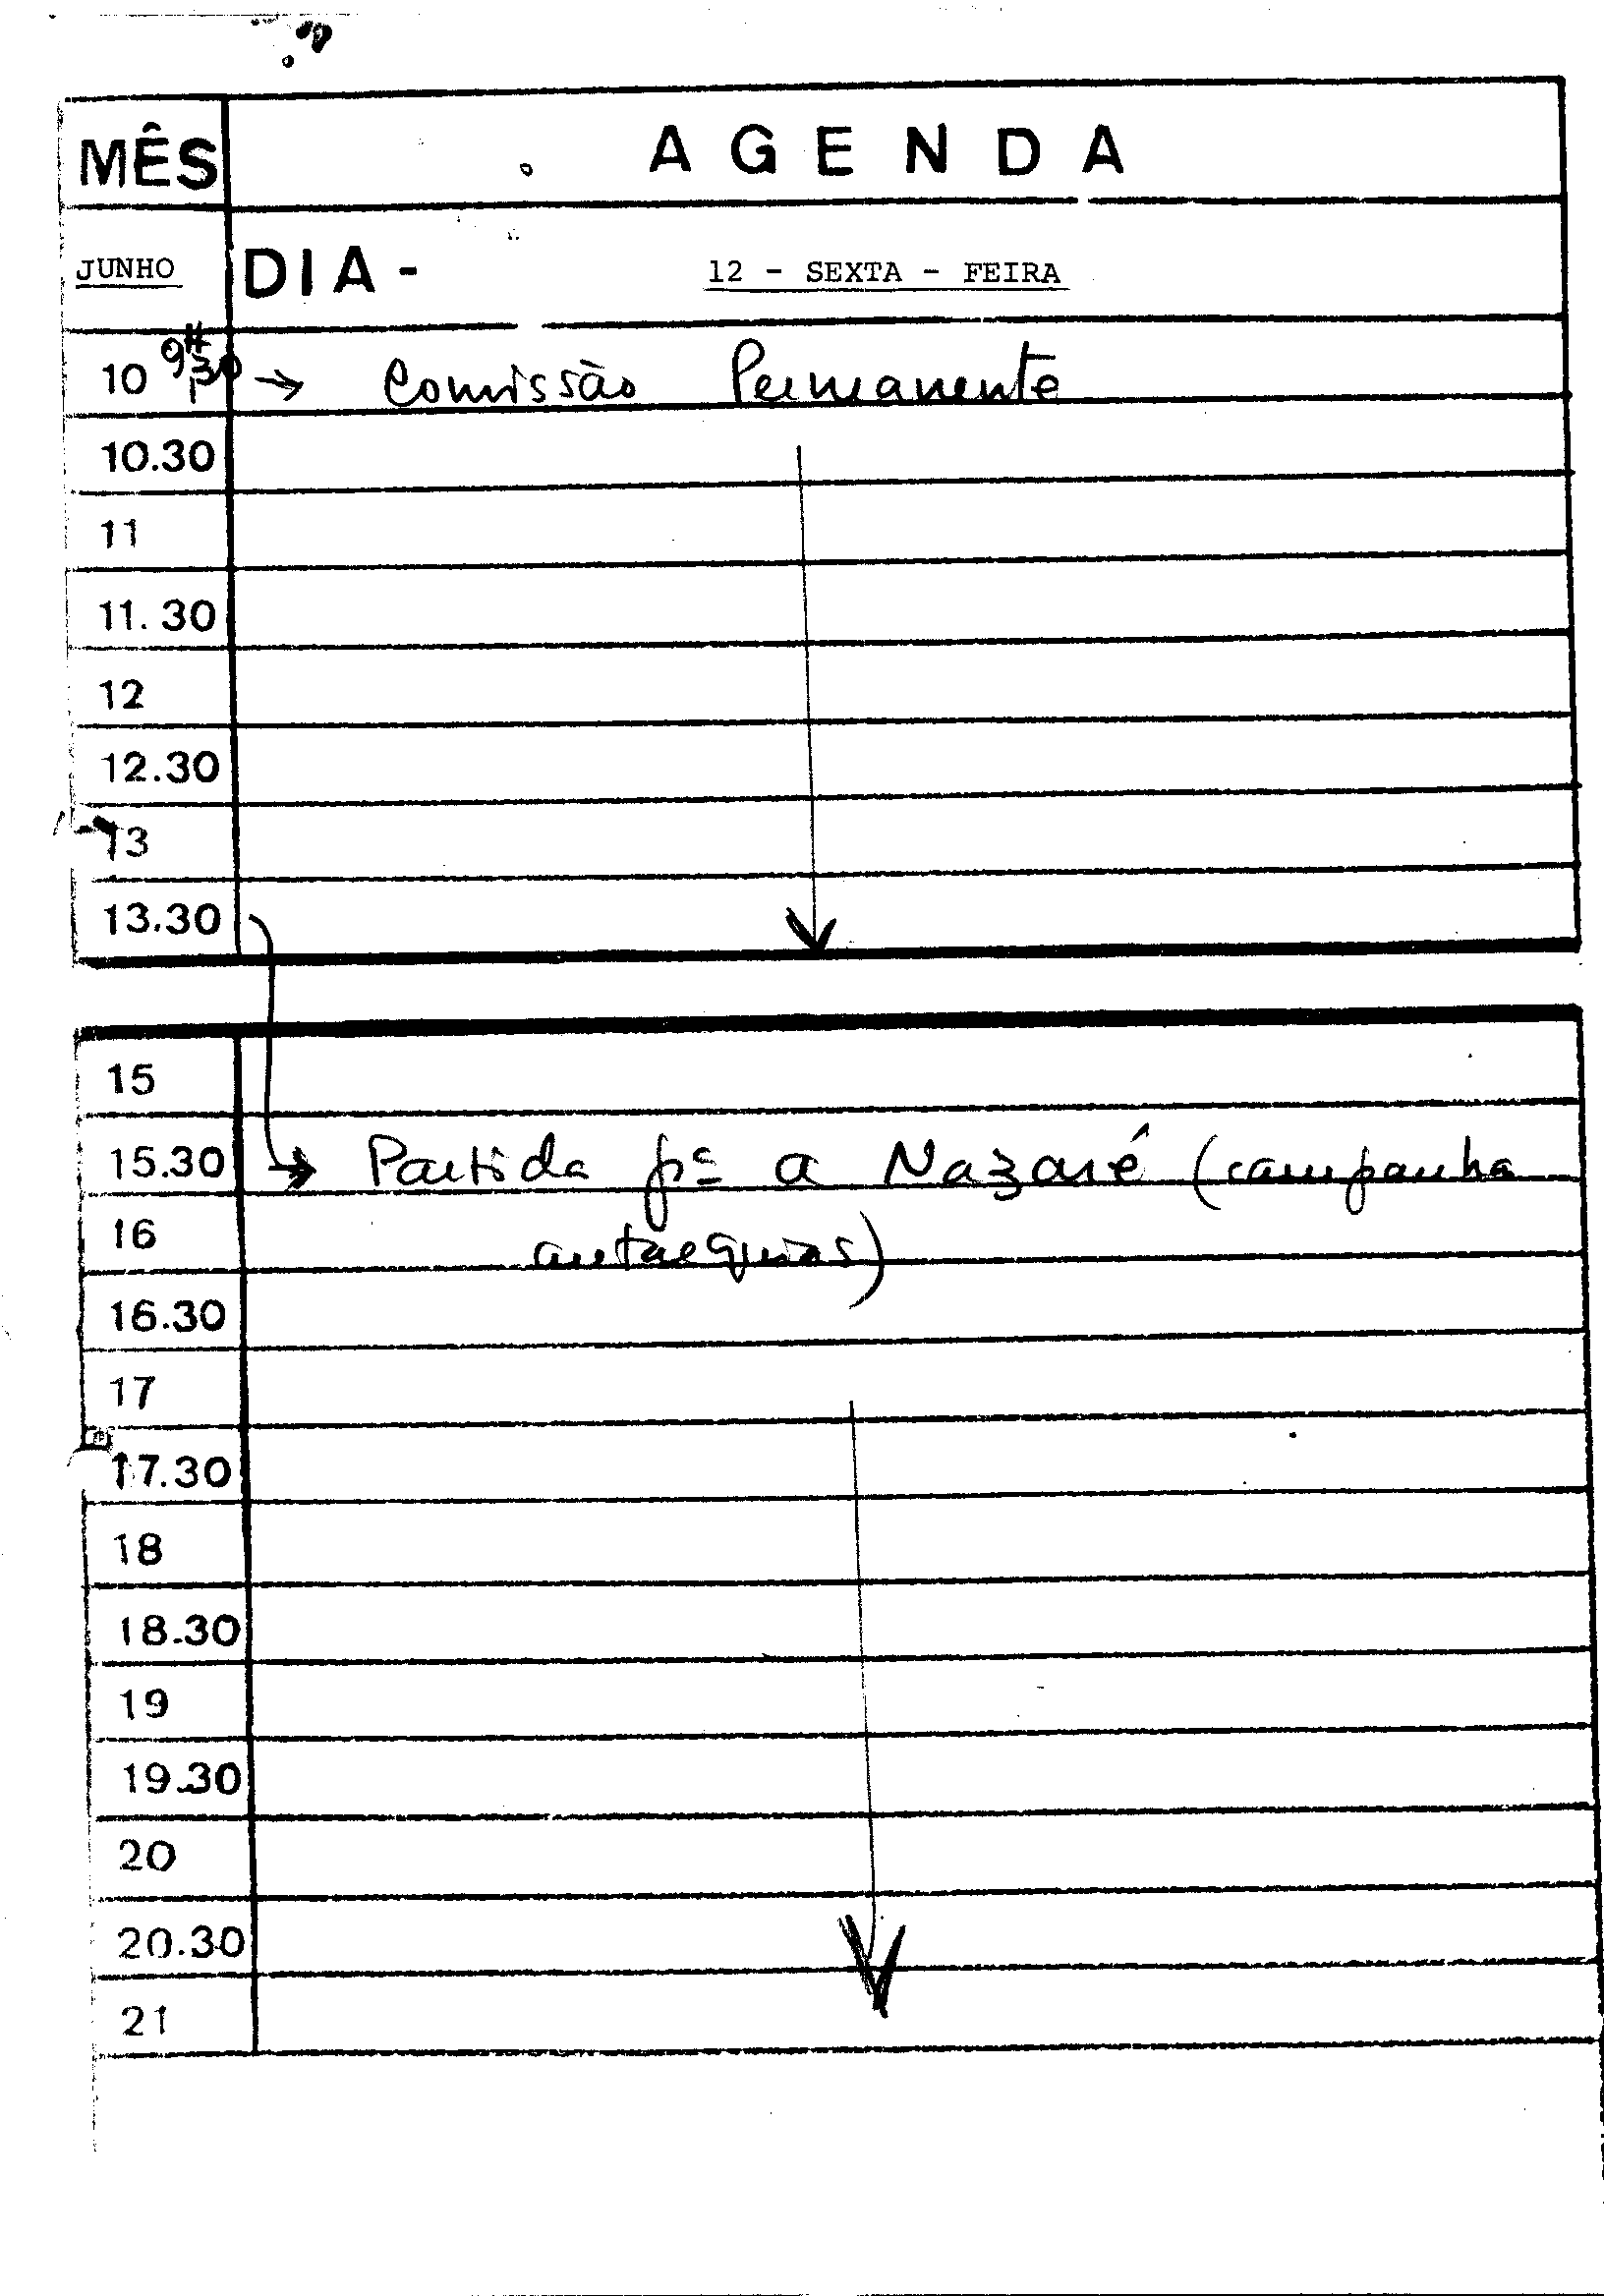 MÊS AGENDA
JUNHO DIA - 12 - SEXTA - FEIRA
10 9H30 → Comissão Permanente
10.30
11
11.30
12
12.30
13
13.30
15
15.30 → Partida pª a Nazaré (campanha
16 autarquias)
16.30
17
17.30
18
18.30
19
19.30
20
20.30
21